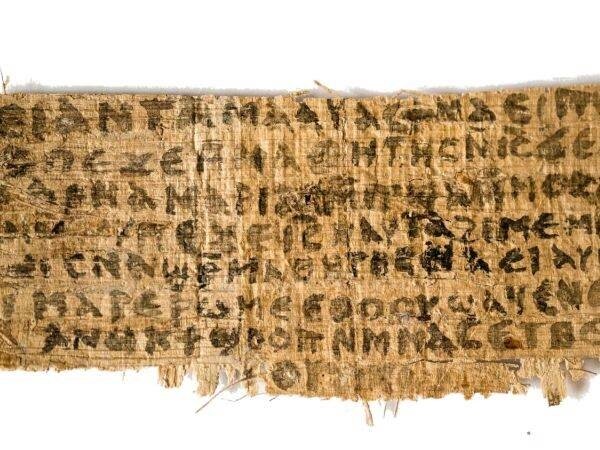 ⲉⲓ ⲁⲛ ⲧⲁⲙⲁⲁⲩ ⲁⲥϯⲛⲁⲉⲓ ⲡ
ⲡⲉϫⲉⲙⲙⲁⲑⲏⲧⲏⲥ ⲛⲓⲥ ϫⲉ
ⲁⲣⲛⲁ ⲙⲁⲣⲓⲁⲙ ⲙⲡϣⲁ ⲙⲙⲟⲥ ⲁ
ⲡⲉϫⲉ ⲓⲥ ⲛⲁⲩ ⲧⲁϩⲓⲙⲉ ⲙ
ⲥⲛⲁϣⲣⲙⲁⲑⲏⲧⲏⲥ ⲛⲁⲉⲓ ⲁⲩ
ⲙⲁⲣⲉⲣⲱⲙⲉ ⲉⲑⲟⲟⲩ ϣⲁϥⲉ ⲛⲉ
ⲁⲛⲟⲕ ϯϣⲟⲟⲡ ⲛⲙⲙⲁⲥ ⲉⲧⲃⲉ